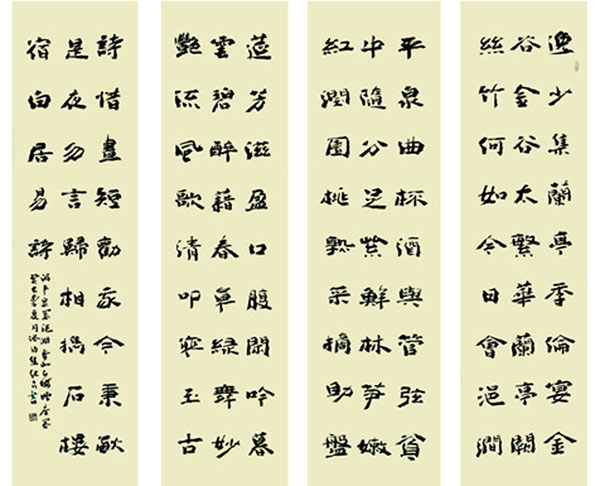 逸少集蘭亭季倫宴金
谷金谷太繁華蘭亭闕
絲竹何如今日會浥澗
平泉曲杯酒與管弦貧
中隨分足紫鮮林笋嫩
紅潤園桃熟采摘助盤
筵芳滋盈口腹閑吟暮
雲碧醉藉春草綠舞妙
艷流風歌清叩寒玉古
詩惜晝短勸我令秉
是夜勿言歸相攜石樓
宿白居易詩